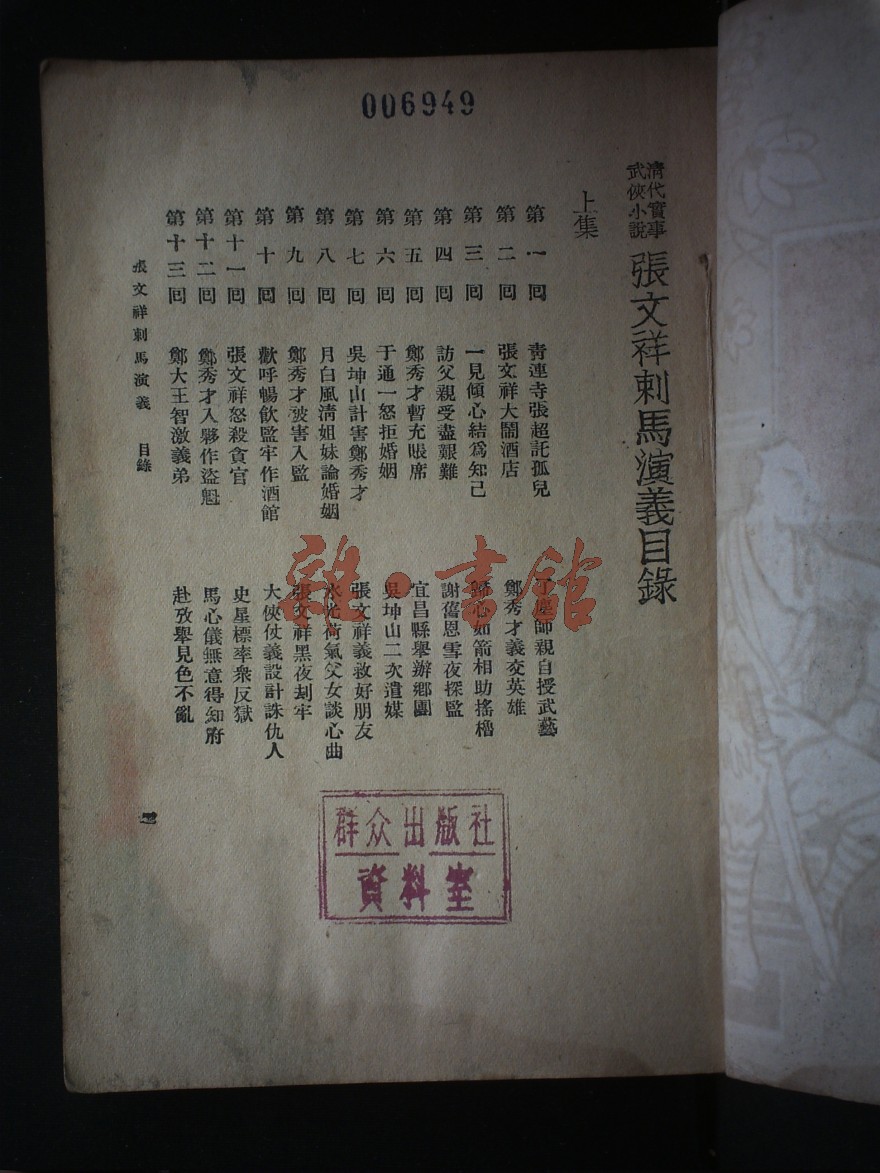 006949
清代實事
武俠小說
張文祥刺馬演義目錄
上集
第一回 青連寺張超託孤兒 了塵師親自授武藝
第二回 張文祥大鬧酒店 鄭秀才義交英雄
第三回 一見傾心結為知己 歸心如箭相助搖櫓
第四回 訪父親受盡艱難 謝舊恩雪夜探監
第五回 鄭秀才暫充賬席 宜昌縣舉辦鄉團
第六回 于通一怒拒婚姻 吳坤山二次遣媒
第七回 吳坤山計害鄭秀才 張文祥義救好朋友
第八回 月白風清姐妹論婚姻 水光荷氣父女談心曲
第九回 鄭秀才被害入監 張文祥黑夜刦牢
第十回 歡呼暢飲監牢作酒館 大俠仗義設計誅仇人
第十一回 張文祥怒殺貪官 史星標率衆反獄
第十二回 鄭秀才入夥作盜魁 馬心儀無意得知府
第十三回 鄭大王智激義弟 赴攷舉見色不亂
張文祥刺馬演義 目錄
一
雜·書館
群众出版社
資料室